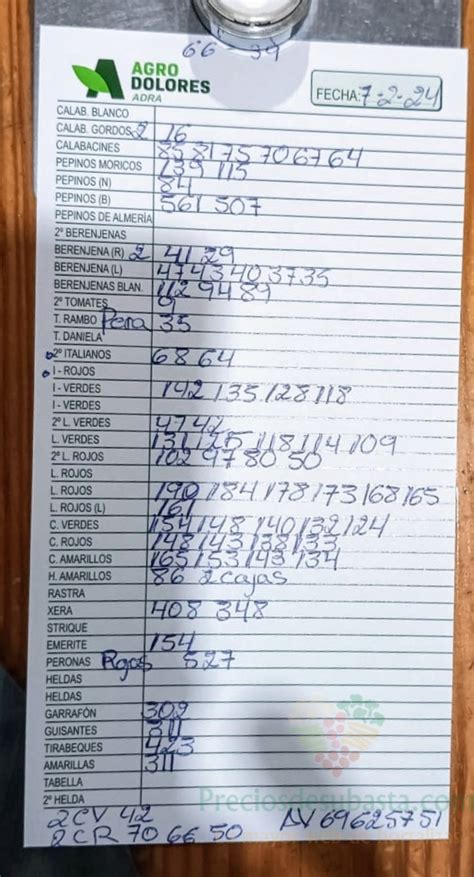 66-39
AGRO
DOLORES
ADRA
FECHA: 7-2-24
CALAB. BLANCO
CALAB. GORDOS 2 16
CALABACINES 85 81 75 70 67 64
PEPINOS MORICOS 139 115
PEPINOS (N) 84
PEPINOS (B) 561 507
PEPINOS DE ALMERÍA
2ª BERENJENAS
BERENJENA (R) 2 41 29
BERENJENA (L) 47 43 40 37 35
BERENJENAS BLAN. 112 94 89
2º TOMATES
T. RAMBO Pera 35
T. DANIELA
2º ITALIANOS 68 64
I - ROJOS
I - VERDES 142 135 128 118
I - VERDES
2º L. VERDES 47 42
L. VERDES 131 125 118 114 109
2º L. ROJOS 102 97 80 50
L. ROJOS
L. ROJOS 190 184 178 173 168 165
L. ROJOS (L) 161
C. VERDES 154 148 140 132 124
C. ROJOS 148 143 138 133
C. AMARILLOS 165 153 143 134
H. AMARILLOS 86 2 cajas
RASTRA
XERA 408 348
STRIQUE
EMERITE 154
PERONAS Rojas 527
HELDAS
HELDAS
GARRAFÓN 309
GUISANTES 811
TIRABEQUES 423
AMARILLAS 311
TABELLA
2º HELDA
Preciosdesubasta.com
2CV 42
AV 69 62 57 51
2CR 70 66 50